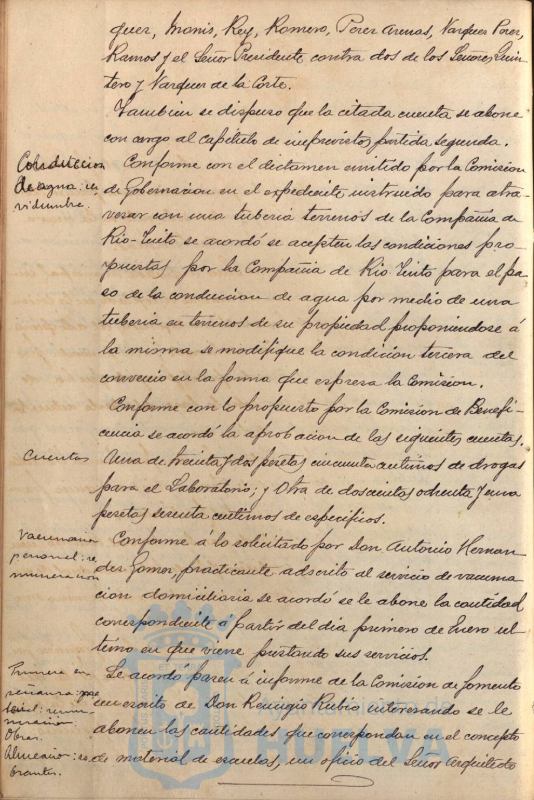 quer, Monis, Rey, Romero, Perez Arenas, Vazquez Perez,
Ramos y el Señor Presidente contra dos de los Señores Quin
tero y Vazquez de la Corte.
Tambien se dispuso que la citada cuenta se abone
con cargo al capítulo de imprevistos partida segunda.
Conduccion
de agua: se
vidumbre.
Conforme con el dictamen emitido por la Comision
de Gobernacion en el expediente instruido para atra
vesar con una tuberia terrenos de la Compañia de
Rio-Tinto se acordó se acepten las condiciones pro
puestas por la Compañia de Rio-Tinto para el pa
so de la conduccion de agua por medio de una
tuberia en terrenos de su propiedad, proponiendose á
la misma se modifique la condicion tercera del
convenio en la forma que expresa la Comision.
Conforme con lo propuesto por la Comision de Benefi
cencia se acordó la aprobacion de las siguientes cuentas.
Cuentas
Una de treinta y dos pesetas cincuenta centimos de drogas
para el Laboratorio; y Otra de doscientas ochenta y una
pesetas sesenta centimos de especificos.
personal: re
muneracion
Conforme á lo solicitado por Don Antonio Hernan
dez Gomez, practicante adscrito al servicio de vacuna
cion domiciliaria se acordó se le abone la cantidad
correspondiente á partir del dia primero de Enero ul
timo en que viene prestando sus servicios.
Primera en
señanza:
Obras
Se acordó pasen á informe de la Comision de fomento
un escrito de Don Remigio Rubio interesando se le
abonen las cantidades que correspondan en el concepto
de material de escuelas, un oficio del Señor Arquitecto
HUELVA